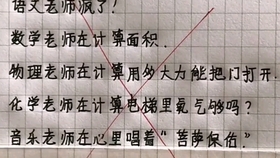 语文老师派了?
数学老师在计算面积.
物理老师在计算用多大力能把门打开.
化学老师在计算电梯里氧气够吗?
音乐老师在心里唱着"菩萨保佑."